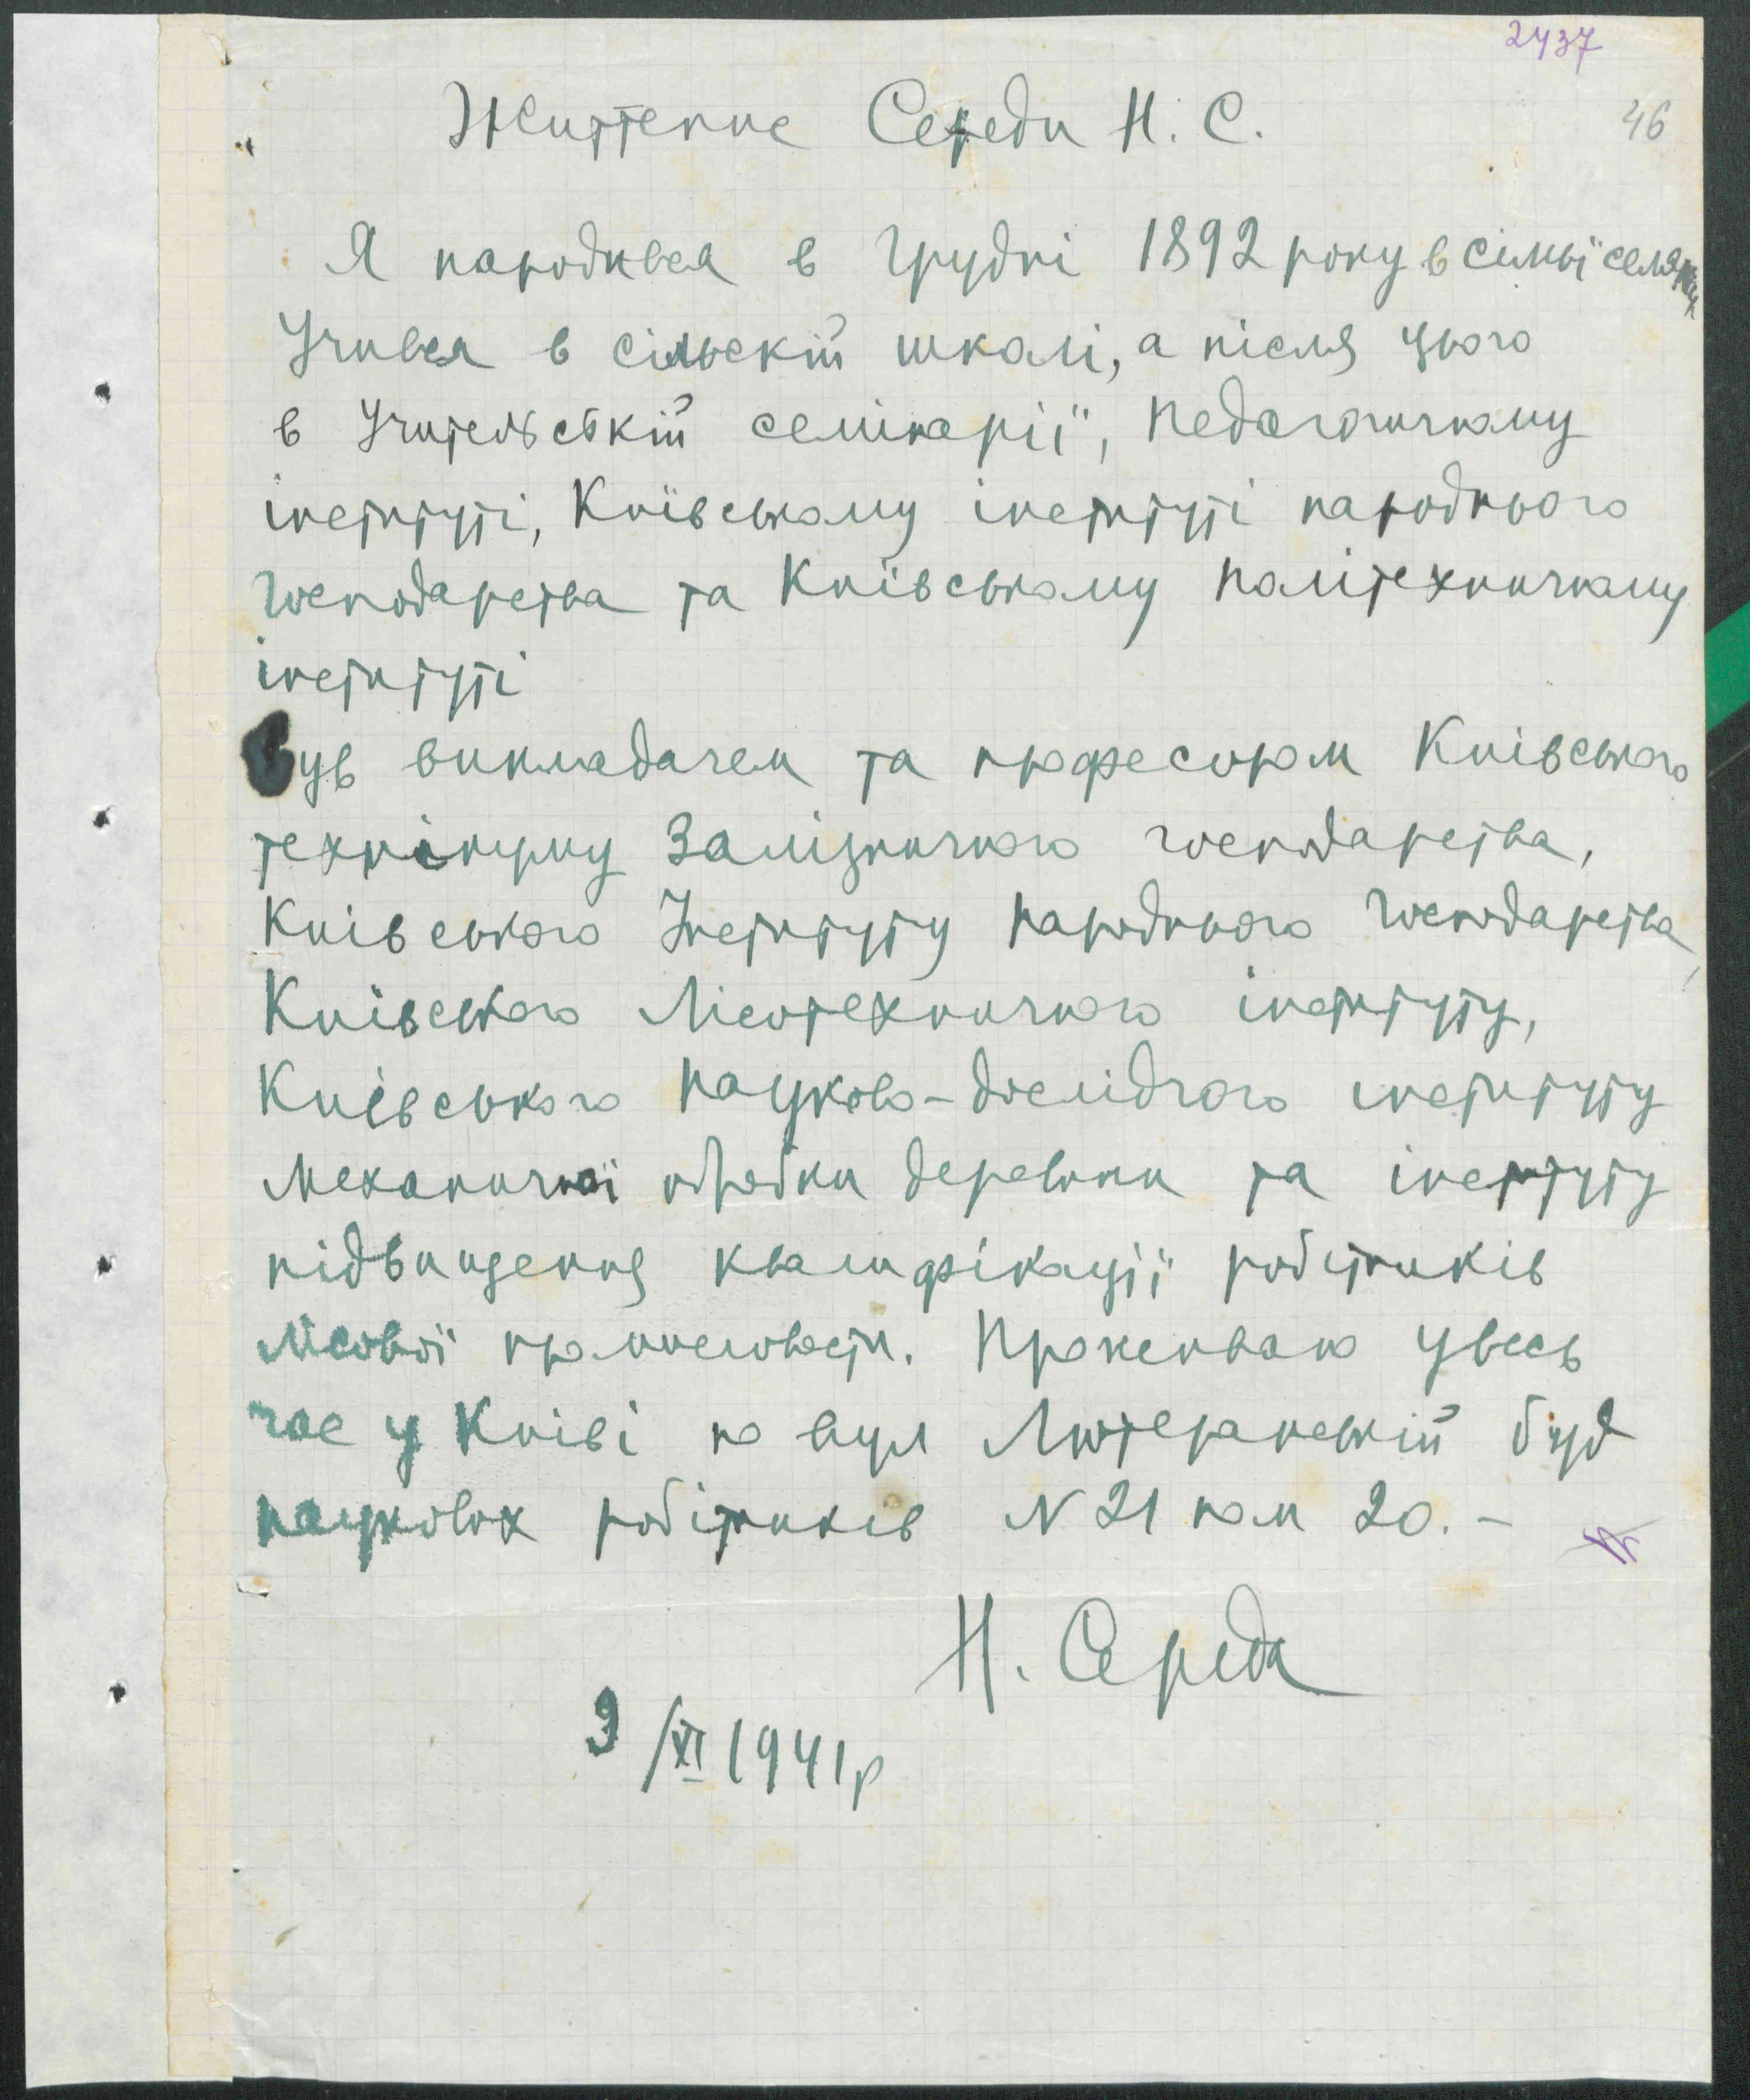 2437
Життепис Середи Н. С.
46
Я народився в Грудні 1892 року в сімьї селян
Учився в сільскій школі, а після цього
в Учительській семінарії, Педагогичному
інституті, Київському інституті народнього
Господарства та Київському Політехничному
інституті
Був викладачем та професором Київського
технікуму Залізничного господарства,
Київського Інституту Народнього Господарства,
Київського Лісотехничного інституту,
Київського Науково-дослідчого інституту
Механичної обробки деревини та інституту
підвищення кваліфікації робітників
лісової промисловости. Проживаю увесь
час у Київі по вул Лютеранській буд
наукових робітників N 21 пом 20. –
Н. Середа
9/XI 1941р